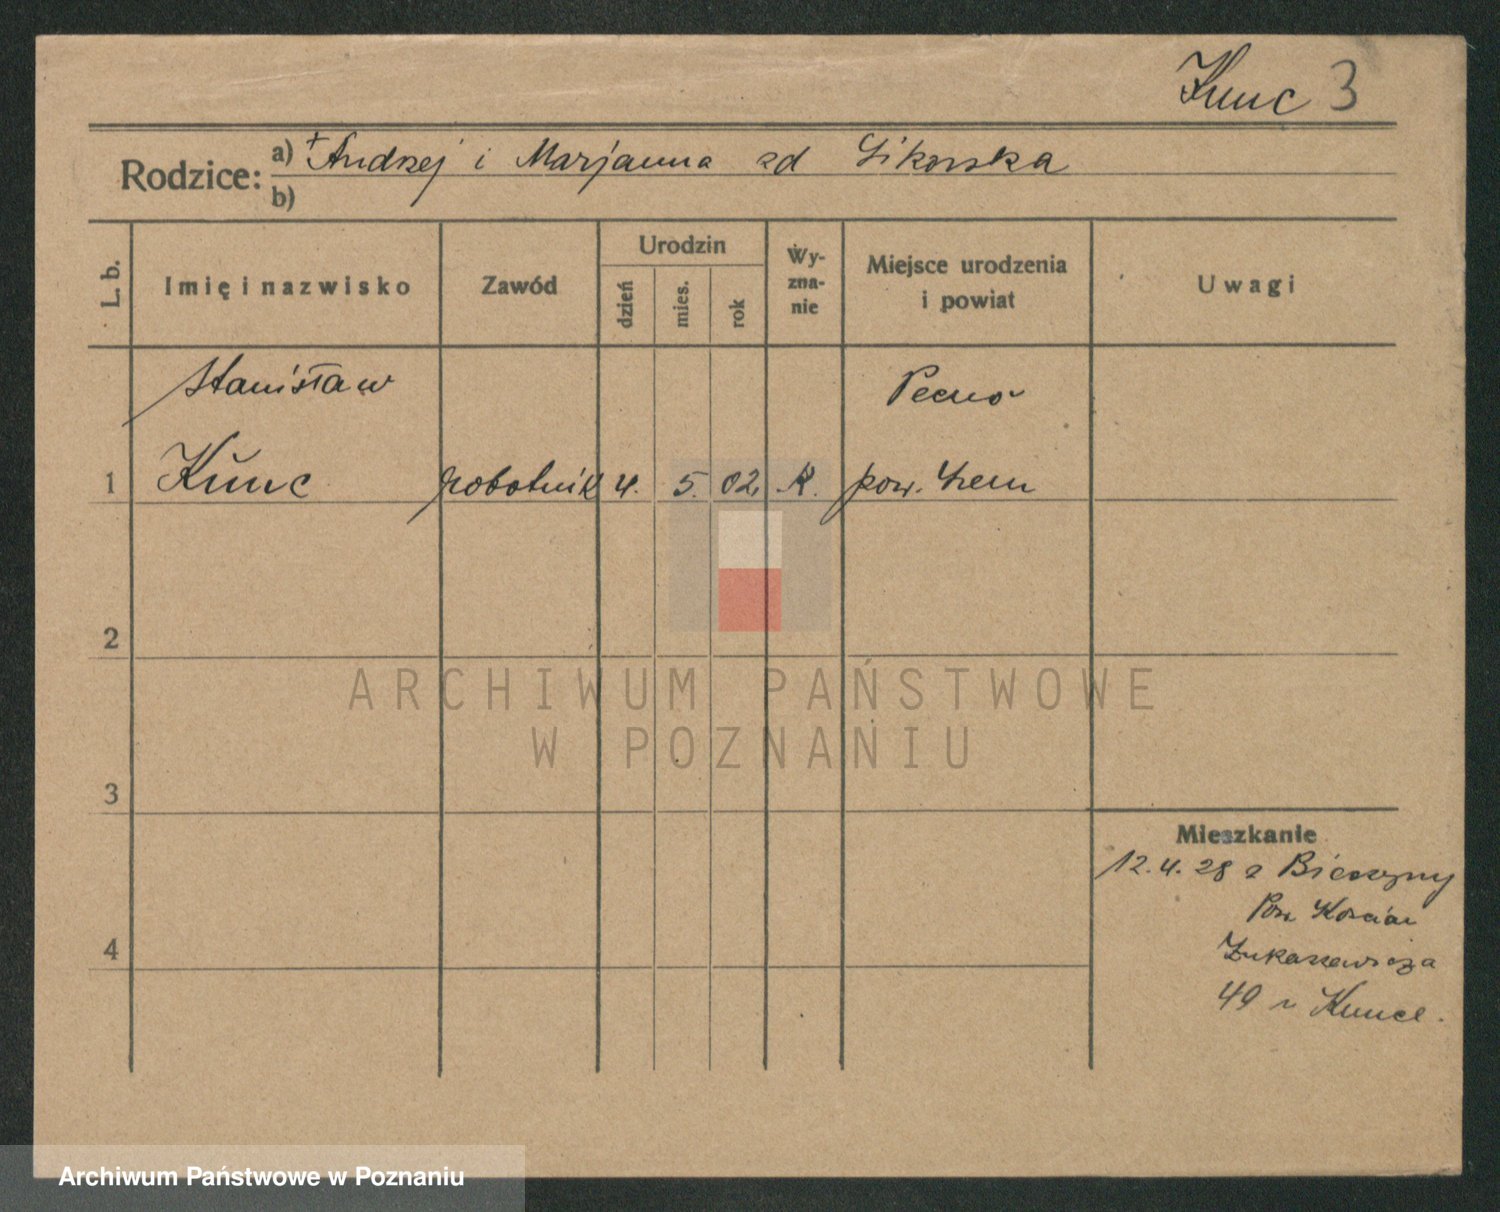 Kunc 3
Rodzice:
a) + Andrzej i Marjanna zd Sikorska
b)
L. b.
Imię i nazwisko
Zawód
Urodzin
dzień
mies.
rok
Wy-
zna-
nie
Miejsce urodzenia
i powiat
Uwagi
Stanisław
Pecno
1 Kunc robotnik 4. 5. 02. K. pow. Śrem
2
3
4
Mieszkanie
12.4.28 z Bieczyny
Pow Kościan
Łukaszewicza
49 u Kunce.
ARCHIWUM PAŃSTWOWE
W POZNANIU
Archiwum Państwowe w Poznaniu